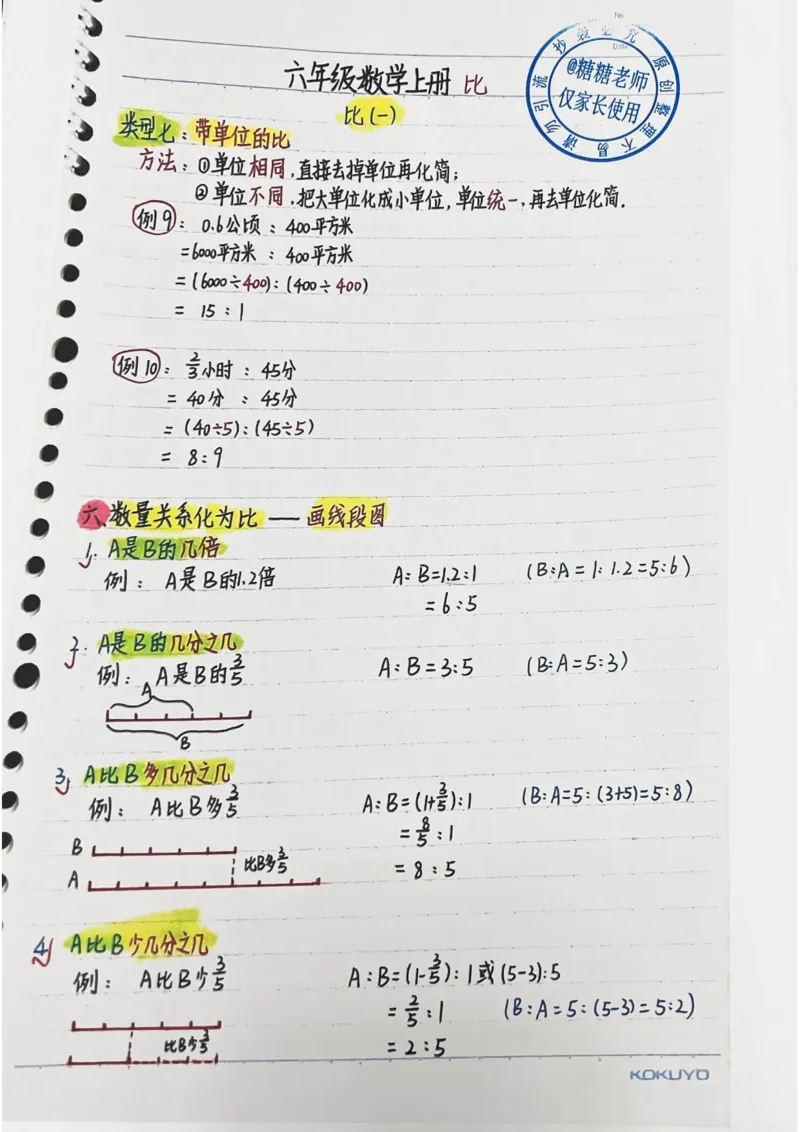 No
Date
抄袭必究 原创整理 不易 请勿引流
@糖糖老师
仅家长使用
六年级数学上册 比
比(一)
类型七：带单位的比
方法：①单位相同，直接去掉单位再化简；
②单位不同，把大单位化成小单位，单位统一，再去单位化简.
例9：0.6公顷：400平方米
=6000平方米：400平方米
=(6000÷400):(400÷400)
= 15:1
例10：2/3小时：45分
= 40分：45分
= (40÷5):(45÷5)
= 8:9
六、数量关系化为比 —— 画线段图
1. A是B的几倍
例：A是B的1.2倍 A:B=1.2:1 (B:A=1:1.2=5:6)
=6:5
2. A是B的几分之几
例：A是B的3/5 A:B=3:5 (B:A=5:3)
A
B
3. A比B多几分之几
例：A比B多3/5 A:B=(1+3/5):1 (B:A=5:(3+5)=5:8)
=8/5:1
B 比B多3/5 =8:5
A
4. A比B少几分之几
例：A比B少3/5 A:B=(1-3/5):1或(5-3):5
=2/5:1 (B:A=5:(5-3)=5:2)
比B少3/5 =2:5
KOKUYO